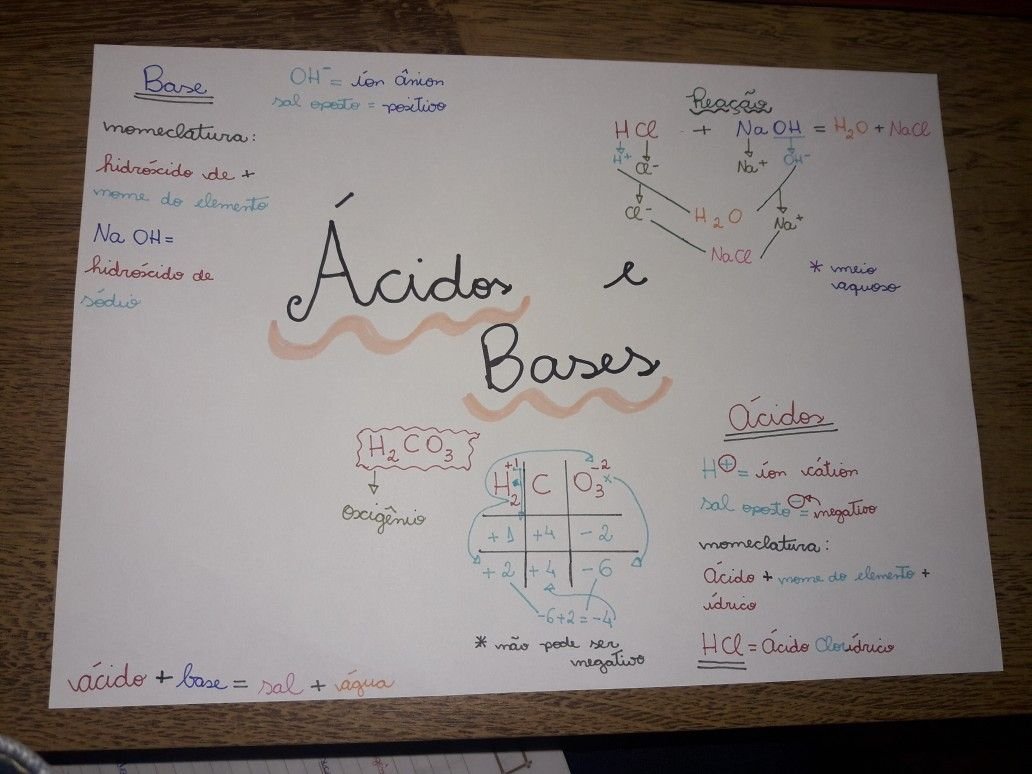 Ácidos e
Bases
Base
OH⁻ = íon ânion
sal oposto = positivo
nomeclatura:
hidróxido de +
nome do elemento
Na OH =
hidróxido de
sódio
Reação
H Cl + Na OH = H₂O + NaCl
H⁺ Cl⁻ Na⁺ OH⁻
Cl⁻ H₂O Na⁺
NaCl
* meio
aquoso
H₂CO₃
oxigênio
H₂⁺¹ C O₃⁻² x
+1 +4 -2
+2 +4 -6
-6+2=-4
* não pode ser
negativo
Ácidos
H⊕ = íon cátion
sal oposto ⊖ = negativo
nomeclatura:
ácido + nome do elemento +
ídrico
HCl = Ácido Clorídrico
ácido + base = sal + água